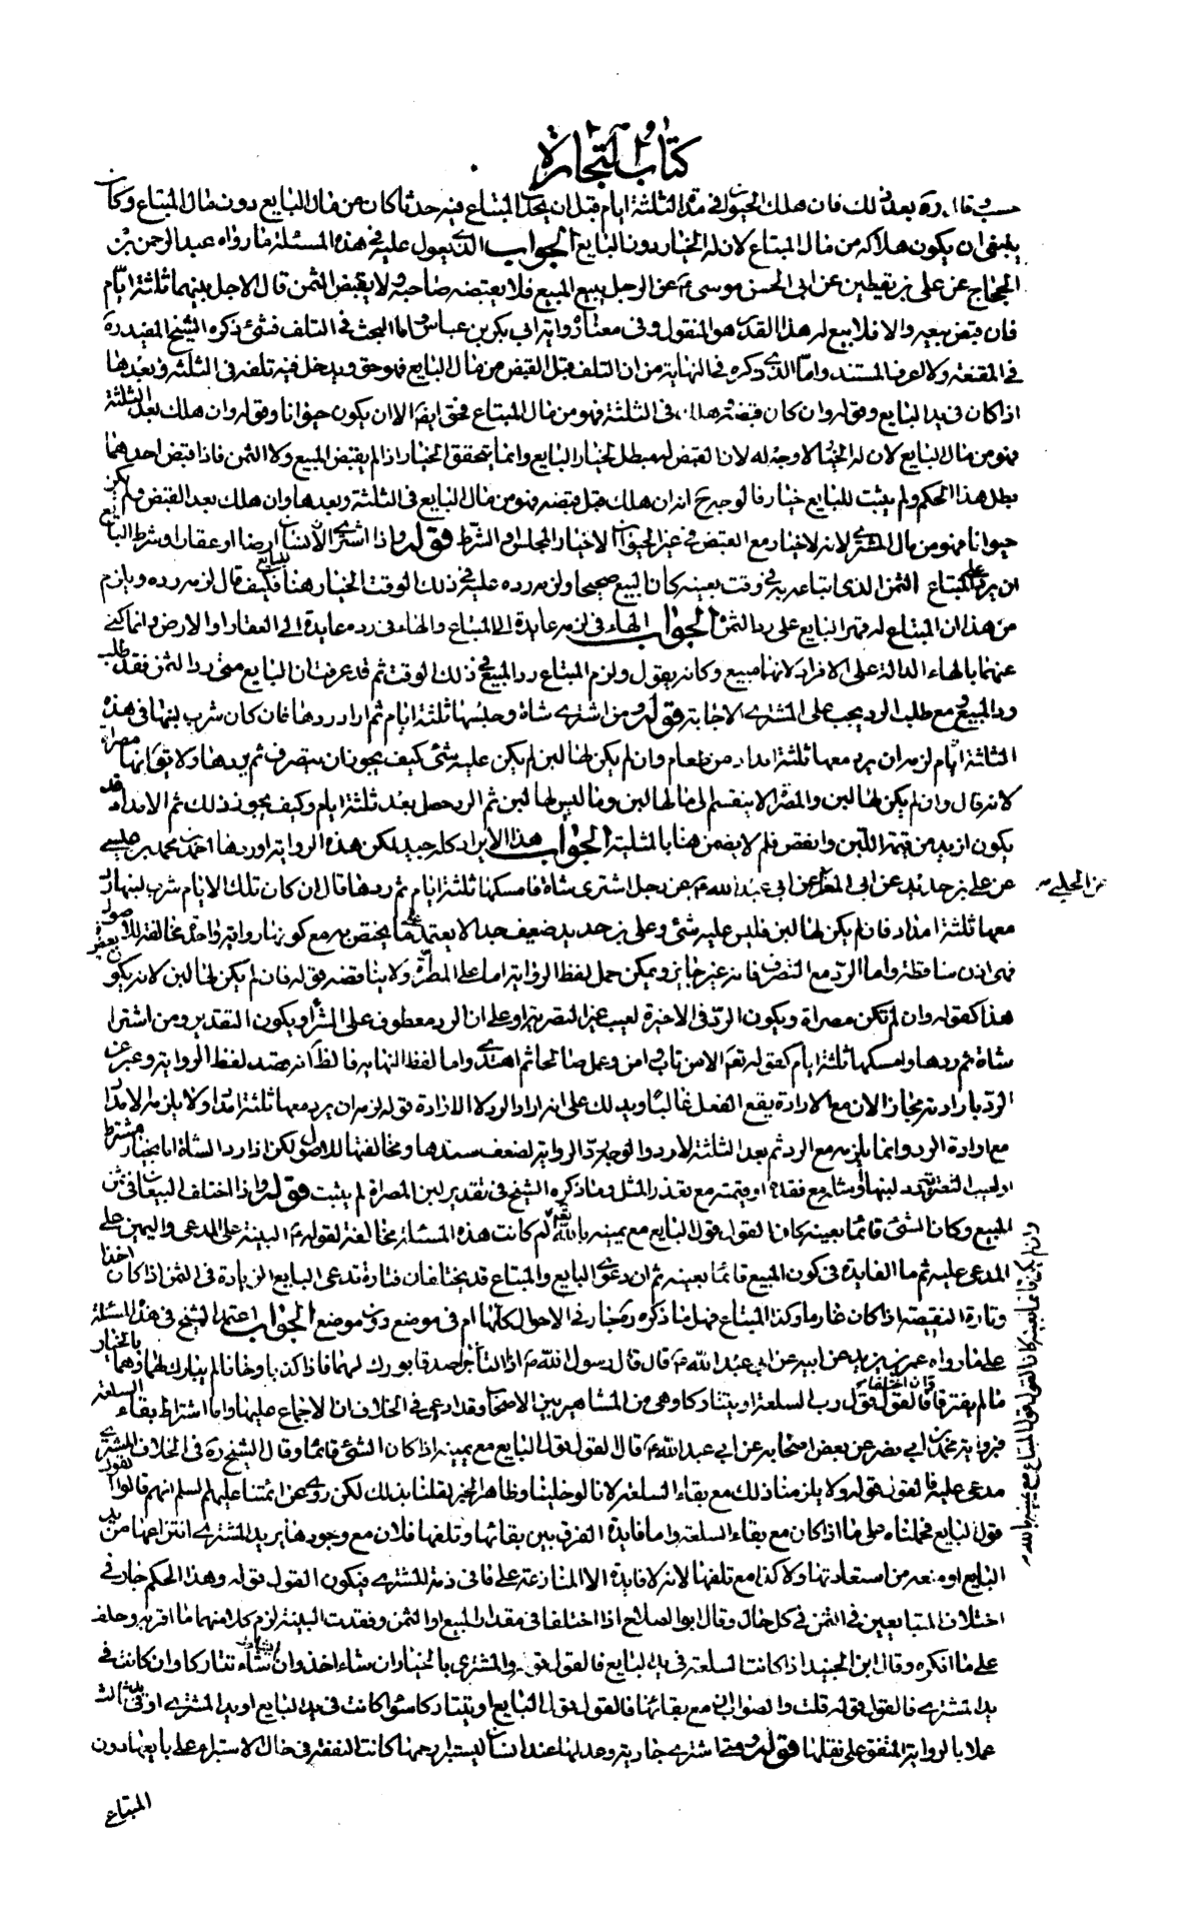 كتاب التجارة
بعد ذلك فان هلك الحيوان في مدة الثلثة ايام قبل ان يحدث المبتاع فيه حدثا كان من مال البايع دون مال المبتاع وكان
ينبغي ان يكون هلاكه من مال المبتاع لان له الخيار دون البايع الجواب الذي يعول عليه في هذه المسئلة ما رواه عبد الرحمن بن
الحجاج عن علي بن يقطين عن ابي الحسن موسى ع عن الرجل يبيع المبيع فلا يقبضه صاحبه ولا يقبض الثمن قال الاجل بينهما ثلثة ايام
فان قبض بيعه والا فلا بيع له هذا القدر هو المنقول وفي معناه رواية ابي بكر بن عياش واما البحث في التلف فشئ ذكره الشيخ المفيد ره
في المقنعة ولا اعرف المستند واما الذي ذكره في النهاية من ان التلف قبل القبض من مال البايع فهو حق ويدخل فيه تلفه في الثلثة وبعدها
اذا كان في يد البايع وقوله وان كان قبضه وهلك في الثلثة فهو من مال المبتاع فحق ايضا الا ان يكون حيوانا وقوله وان هلك بعد الثلثة
فهو من مال البايع لان له الخيار لا وجه له لان القبض مبطل لخيار البايع وانما يتحقق الخيار اذا لم يقبض المبيع ولا الثمن فاذا قبض احدهما
بطل هذا الحكم ولم يثبت للبايع خيار فالوجه ح انه ان هلك قبل قبضه فهو من مال البايع في الثلثة وبعدها وان هلك بعد القبض ولم يكن
حيوانا فهو من مال المشتري لانه لا خيار مع القبض في غير الحيوان الا خيار المجلس او الشرط قوله واذا اشترى الانسان ارضا او عقارا وشرط البايع
ان يرد على المبتاع الثمن الذي ابتاعه به في وقت بعينه كان البيع صحيحا ولزمه رده عليه في ذلك الوقت الخيار هنا للبايع فكيف قال لزمه رده ويلزم
من هذا ان المبتاع له قهر البايع على رد الثمن الجواب الهاء في لزمه عايدة الى المبتاع والهاء في رده عايدة الى العقار او الارض وانما كنى
عنهما بالهاء الدالة على الافراد لانهما مبيع وكانه يقول ولزم المبتاع رد المبيع في ذلك الوقت ثم قد عرفت ان البايع متى رد الثمن فقد طلب
رد المبيع ومع طلب الرد يجب على المشتري الاجابة قوله ومن اشترى شاة وحبسها ثلثة ايام ثم اراد ردها فان كان شرب لبنها في هذه
الثلثة ايام لزمه ان يرد معها ثلثة امداد من طعام وان لم يكن لها لبن لم يكن عليه شئ كيف يجوز ان يتصرف ثم يردها ولا يقال انها مصراة
لانه قال وان لم يكن لها لبن والمصراة لا ينقسم الى ما لها لبن وما ليس لها لبن ثم الرد حصل بعد ثلثة ايام وكيف يجوز ذلك ثم الامداد قد
يكون ازيد من قيمة اللبن وانقص فلم لا يضمن هنا بالمثلية الجواب هذا الايراد كله جيد لكن هذه الرواية اوردها احمد بن محمد بن عيسى
عن علي بن حديد عن ابي المغرا عن ابي عبد الله ع عن رجل اشترى شاة فامسكها ثلثة ايام ثم ردها قال ان كان تلك الايام شرب لبنها رد
عن الحلبي
معها ثلثة امداد فان لم يكن لها لبن فليس عليه شئ وعلي بن حديد ضعيف جدا لا يعتمد على ما يختص به مع كونها رواية واحدة مخالفة للاصول
فهي اذن ساقطة واما الرد مع التصرف فانه غير جايز ويمكن حمل لفظ الرواية اما على المصراة ولا يناقضه قوله فان لم يكن لها لبن لانه يكون
هذا كقوله وان لم تكن مصراة ويكون الرد في الاخيرة لعيب غير التصرية او على ان الرد معطوف على الشراء ويكون التقدير ومن اشترى
شاة ثم ردها وامسكها ثلثة ايام كقوله تعالى الا من تاب وامن وعمل صالحا ثم اهتدى واما لفظ النهاية فالظاهر انه قصد لفظ الرواية وعبر عن
الرد بارادته مجازا لان مع الارادة يقع الفعل غالبا ويدلك على انه اراد الرد لا الارادة قوله لزمه ان يرد معها ثلثة امداد ولا يلزمه الامداد
مع ارادة الرد وانما يلزمه مع الرد ثم بعد الثلثة لا رد والوجه رد الرواية لضعف سندها ومخالفتها للاصول لكن اذا رد الشاة اما بخيار مشترط
او لعيب التصرية رد لبنها او مثله مع فقده او قيمته مع تعذر المثل وما ذكره الشيخ في تقدير لبن المصراة لم يثبت قوله واذا اختلف البيعان في ثمن
المبيع وكان الشئ قائما بعينه كان القول قول البايع مع يمينه بالله تعالى لم كانت هذه المسئلة مخالفة لقوله ع البينة على المدعي واليمين على
وان لم يكن قائما بعينه كان القول قول المبتاع مع يمينه بالله
المدعى عليه ثم ما الفايدة في كون المبيع قائما بعينه ثم ان دعوى البايع والمبتاع قد يختلفان فتارة تدعى البايع الزيادة في الثمن اذا كان اخذا
وتارة النقيصة اذا كان غارما وكذا المبتاع فهل ما ذكره ره جار في الاحوال كلها ام في موضع دون موضع الجواب اعتمد الشيخ في هذه المسئلة
على ما رواه عمر بن يزيد عن ابيه عن ابي عبد الله ع قال قال رسول الله ص اذا التاجران صدقا بورك لهما فاذا كذبا وخانا لم يبارك لهما وهما بالخيار
ما لم يفترقا فان اختلفا فالقول قول رب السلعة او يتتاركا وهي من المشاهير بين الاصحاب وقد ادعى في الخلاف ان الاجماع عليها واما اشتراط بقاء السلعة
فرواية محمد بن ابي نصر عن بعض اصحابه عن ابي عبد الله ع قال القول قول البايع مع يمينه اذا كان الشئ قائما وقال الشيخ ره في الخلاف المشتري
مدعى عليه فالقول قوله ولا يلزمنا ذلك مع بقاء السلعة لانا لو خلينا وظاهر الخبر لقلنا بذلك لكن روي عن ائمتنا عليهم السلم انهم قالوا القول
قول البايع فحملناه على ما اذا كان مع بقاء السلعة واما فايدة الفرق بين بقائها وتلفها فلان مع وجودها يريد المشتري انتزاعها من يد
البايع من استعادتها ولا كذا مع تلفها لانه لا فايدة الا المنازعة على ما في ذمة المشتري فيكون القول قوله وهذا الحكم جار في
اختلاف المتبايعين في الثمن في كل حال وقال ابو الصلاح اذا اختلفا في مقدار المبيع او الثمن وفقدت البينة لزم كلا منهما ما اقر به وحلف
على ما انكره وقال ابن الجنيد اذا كانت السلعة في يد البايع فالقول قوله والمشتري بالخيار ان شاء اخذ وان شاء تتاركا وان كانت في
يد المشتري فالقول قوله قلت والصواب ان مع بقائها فالقول قول البايع او يتتاركا سواء كانت في يد البايع او يد المشتري او في يد ثالث
عملا بالرواية المتفق على نقلها قوله ومتى اشترى جارية وعدلها عند انسان ليستبرء رحمها كانت النفقة في حال الاستبراء على بايعها دون
المبتاع